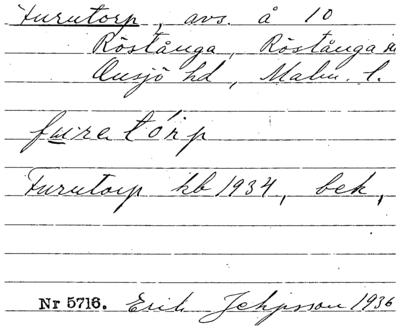 Furutorp, avs. å 10
Röstånga, Röstånga
Onsjö hd, Malm. l.
furetórp
Furutorp kb 1934, bek,
Nr 5716. Erik Jeppsson 1936